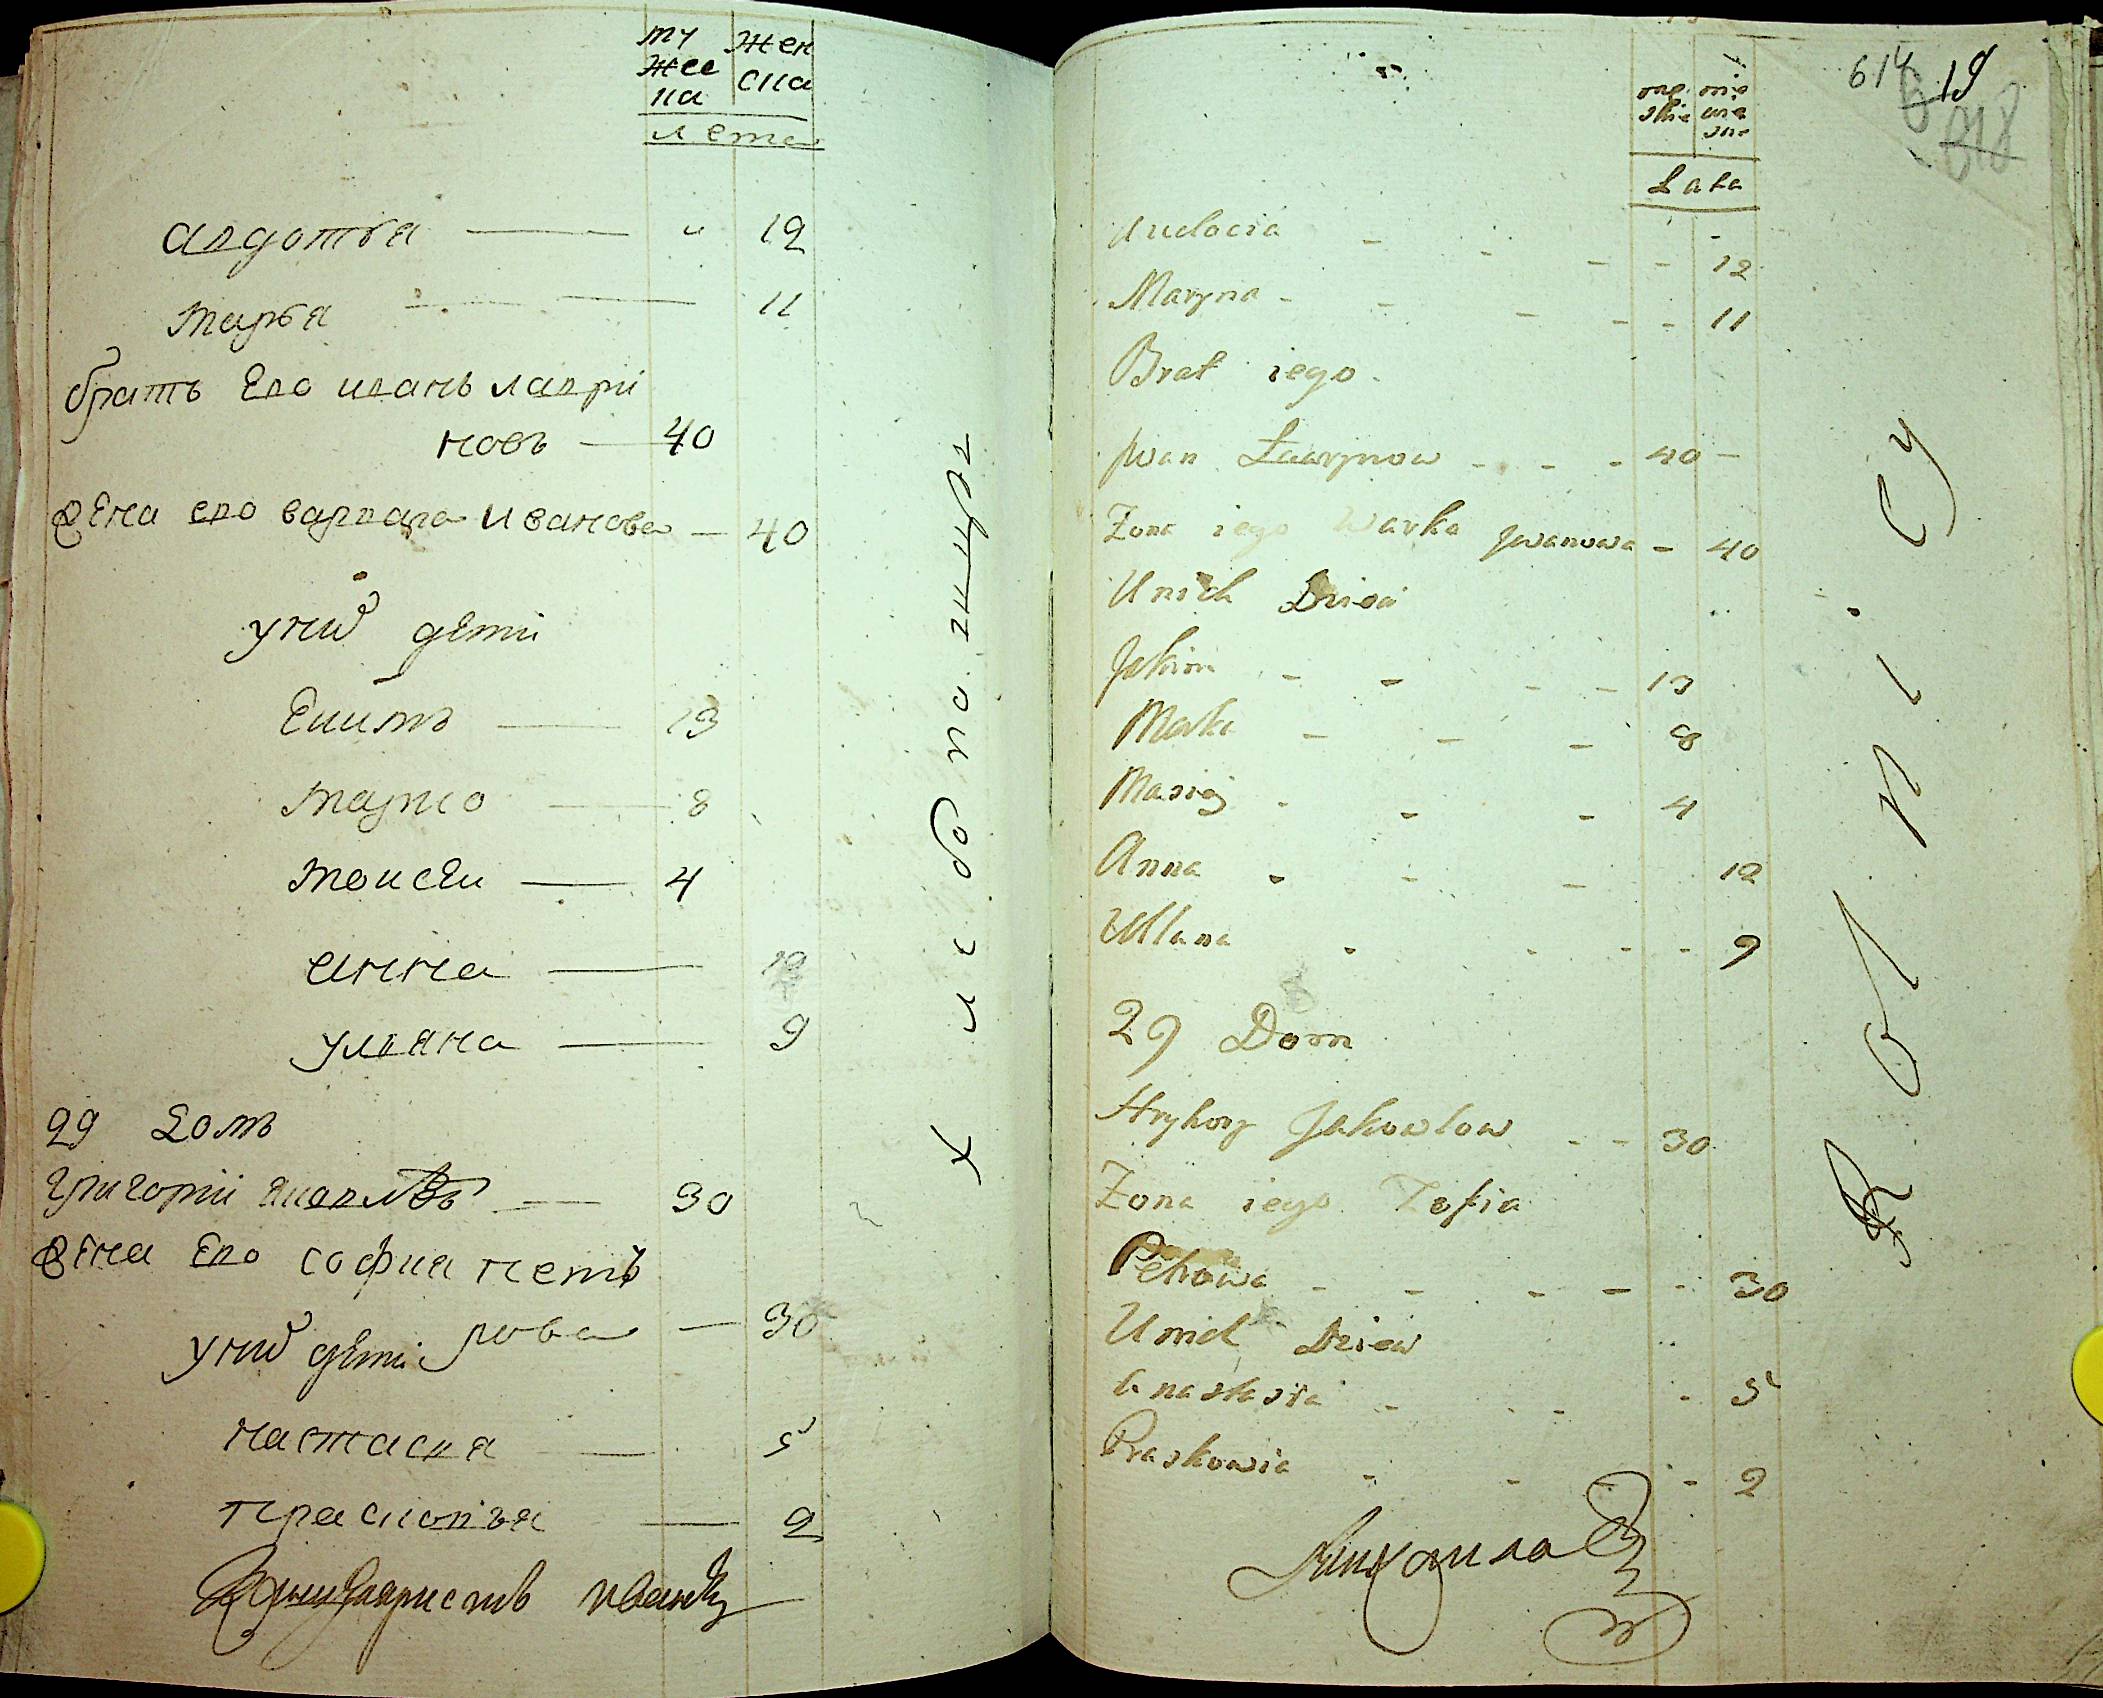 му жеска
жен ска
лета
авдотья — " 12
марья — 11
братъ Ево иванъ лаври
новъ — 40
жена ево варвара Иванова — 40
у них дети
Екимъ — 13
марко — 8
моисеи — 4
анна — 12
ульяна — 9
29 домъ
григории яковлевъ — 30
жена Ево софия петъ
рова — 30
у них дети
настасия — 5
прасковья — 2
614 19
618
mę skie
nie wie sne
Lata
Audocia - 12
Maryna - 11
Brat iego
Jwan Ławrynow - 40 -
Zona iego Warka Jwanowa - 40
Unich Dzieci
Jakim - 13
Marko - 8
Masiej - 4
Anna - 12
Ullana - 9
29 Dom
Hryhory Jakowlow - 30
Zona iego Zofia
Petrowa - 30
Unich Dzieci
Anastasia - 5
Praskowia - 2